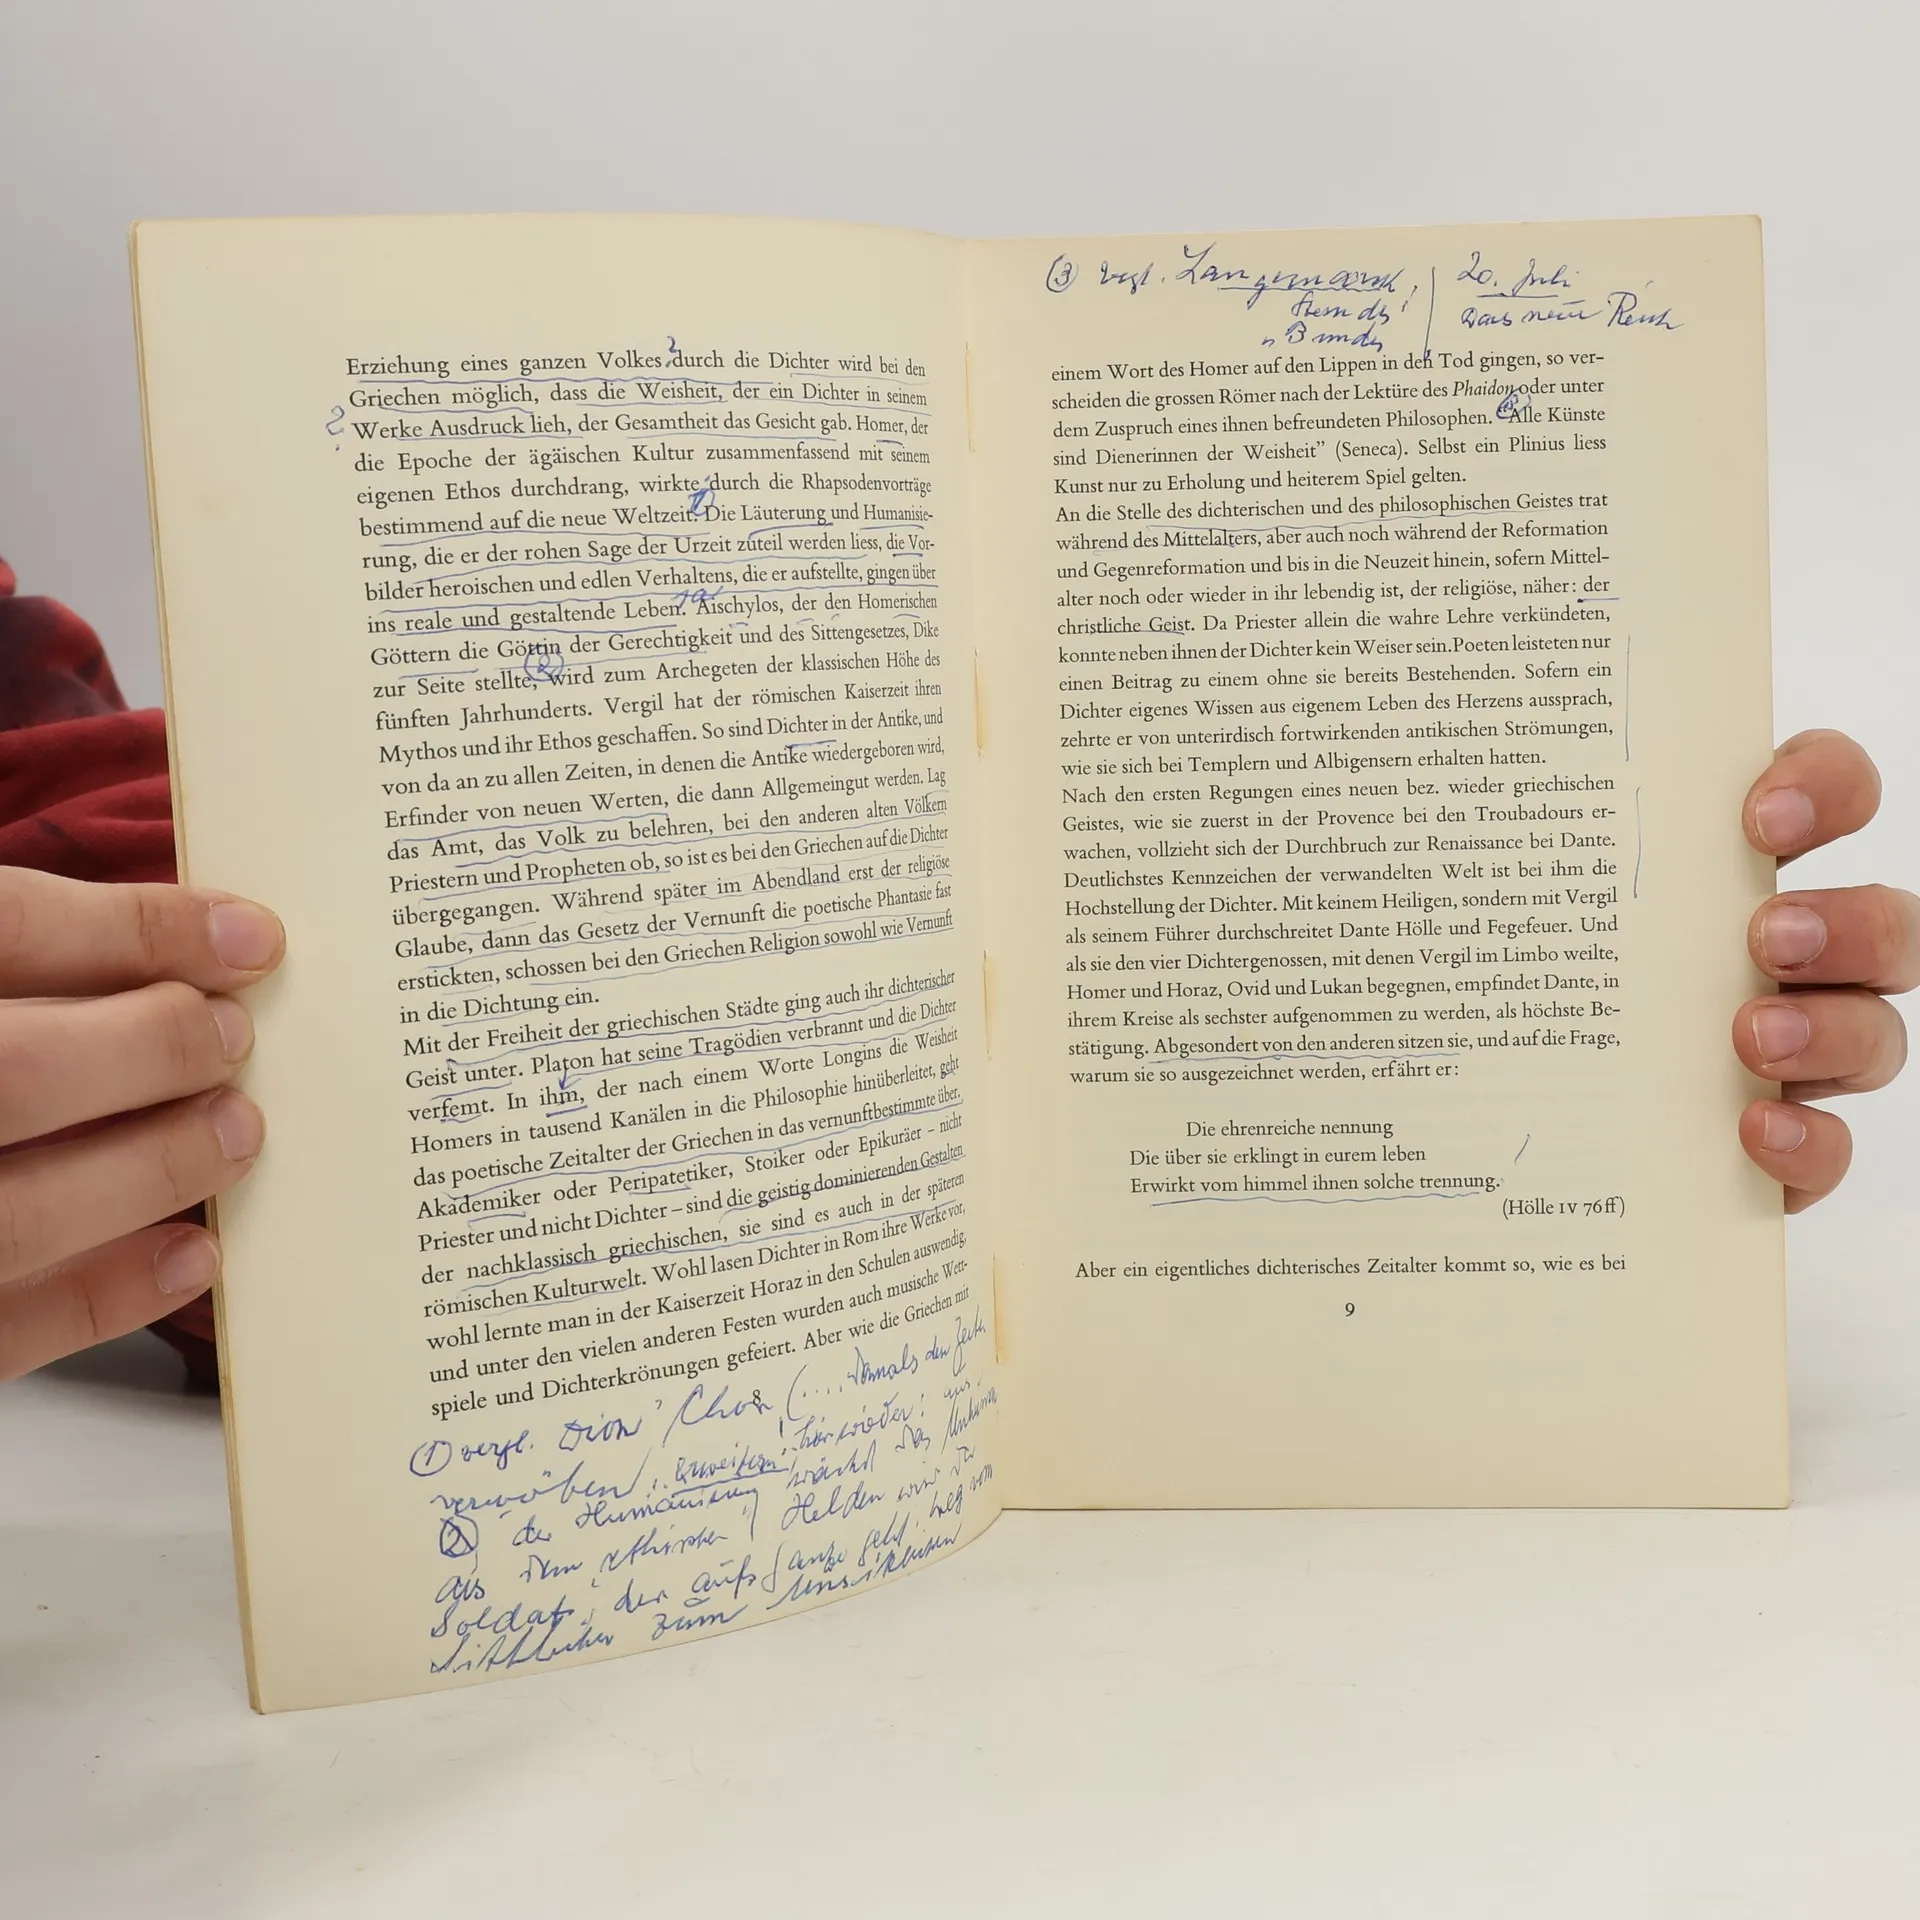 Erziehung eines ganzen Volkes durch die Dichter wird bei den
Griechen möglich, dass die Weisheit, der ein Dichter in seinem
Werke Ausdruck lieh, der Gesamtheit das Gesicht gab. Homer, der
die Epoche der ägäischen Kultur zusammenfassend mit seinem
eigenen Ethos durchdrang, wirkte durch die Rhapsodenvorträge
bestimmend auf die neue Weltzeit. Die Läuterung und Humanisie-
rung, die er der rohen Sage der Urzeit zuteil werden liess, die Vor-
bilder heroischen und edlen Verhaltens, die er aufstellte, gingen über
ins reale und gestaltende Leben. Aischylos, der den Homerischen
Göttern die Göttin der Gerechtigkeit und des Sittengesetzes, Dike
zur Seite stellte, wird zum Archegeten der klassischen Höhe des
fünften Jahrhunderts. Vergil hat der römischen Kaiserzeit ihren
Mythos und ihr Ethos geschaffen. So sind Dichter in der Antike, und
von da an zu allen Zeiten, in denen die Antike wiedergeboren wird,
Erfinder von neuen Werten, die dann Allgemeingut werden. Lag
das Amt, das Volk zu belehren, bei den anderen alten Völkern
Priestern und Propheten ob, so ist es bei den Griechen auf die Dichter
übergegangen. Während später im Abendland erst der religiöse
Glaube, dann das Gesetz der Vernunft die poetische Phantasie fast
erstickten, schossen bei den Griechen Religion sowohl wie Vernunft
in die Dichtung ein.
Mit der Freiheit der griechischen Städte ging auch ihr dichterischer
Geist unter. Platon hat seine Tragödien verbrannt und die Dichter
verfemt. In ihm, der nach einem Worte Longins die Weisheit
Homers in tausend Kanälen in die Philosophie hinüberleitet, geht
das poetische Zeitalter der Griechen in das vernunftbestimmte über.
Akademiker oder Peripatetiker, Stoiker oder Epikuräer – nicht
Priester und nicht Dichter – sind die geistig dominierenden Gestalten
der nachklassisch griechischen, sie sind es auch in der späteren
römischen Kulturwelt. Wohl lasen Dichter in Rom ihre Werke vor,
wohl lernte man in der Kaiserzeit Horaz in den Schulen auswendig,
und unter den vielen anderen Festen wurden auch musische Wett-
spiele und Dichterkrönungen gefeiert. Aber wie die Griechen mit
8
① vergl. Dion
② der Humanisierung wächst das
aus dem ethischen Helden wird der
Soldat, der aufs Ganze geht, weg vom
Sittlichen zum
③ vgl. Langemarck,
Stern des
Bundes
20. Juli
Das neue Reich
einem Wort des Homer auf den Lippen in den Tod gingen, so ver-
scheiden die grossen Römer nach der Lektüre des Phaidon oder unter
dem Zuspruch eines ihnen befreundeten Philosophen. "Alle Künste
sind Dienerinnen der Weisheit" (Seneca). Selbst ein Plinius liess
Kunst nur zu Erholung und heiterem Spiel gelten.
An die Stelle des dichterischen und des philosophischen Geistes trat
während des Mittelalters, aber auch noch während der Reformation
und Gegenreformation und bis in die Neuzeit hinein, sofern Mittel-
alter noch oder wieder in ihr lebendig ist, der religiöse, näher: der
christliche Geist. Da Priester allein die wahre Lehre verkündeten,
konnte neben ihnen der Dichter kein Weiser sein. Poeten leisteten nur
einen Beitrag zu einem ohne sie bereits Bestehenden. Sofern ein
Dichter eigenes Wissen aus eigenem Leben des Herzens aussprach,
zehrte er von unterirdisch fortwirkenden antikischen Strömungen,
wie sie sich bei Templern und Albigensern erhalten hatten.
Nach den ersten Regungen eines neuen bez. wieder griechischen
Geistes, wie sie zuerst in der Provence bei den Troubadours er-
wachen, vollzieht sich der Durchbruch zur Renaissance bei Dante.
Deutlichstes Kennzeichen der verwandelten Welt ist bei ihm die
Hochstellung der Dichter. Mit keinem Heiligen, sondern mit Vergil
als seinem Führer durchschreitet Dante Hölle und Fegefeuer. Und
als sie den vier Dichtergenossen, mit denen Vergil im Limbo weilte,
Homer und Horaz, Ovid und Lukan begegnen, empfindet Dante, in
ihrem Kreise als sechster aufgenommen zu werden, als höchste Be-
stätigung. Abgesondert von den anderen sitzen sie, und auf die Frage,
warum sie so ausgezeichnet werden, erfährt er:
Die ehrenreiche nennung
Die über sie erklingt in eurem leben
Erwirkt vom himmel ihnen solche trennung.
(Hölle IV 76ff)
Aber ein eigentliches dichterisches Zeitalter kommt so, wie es bei
9